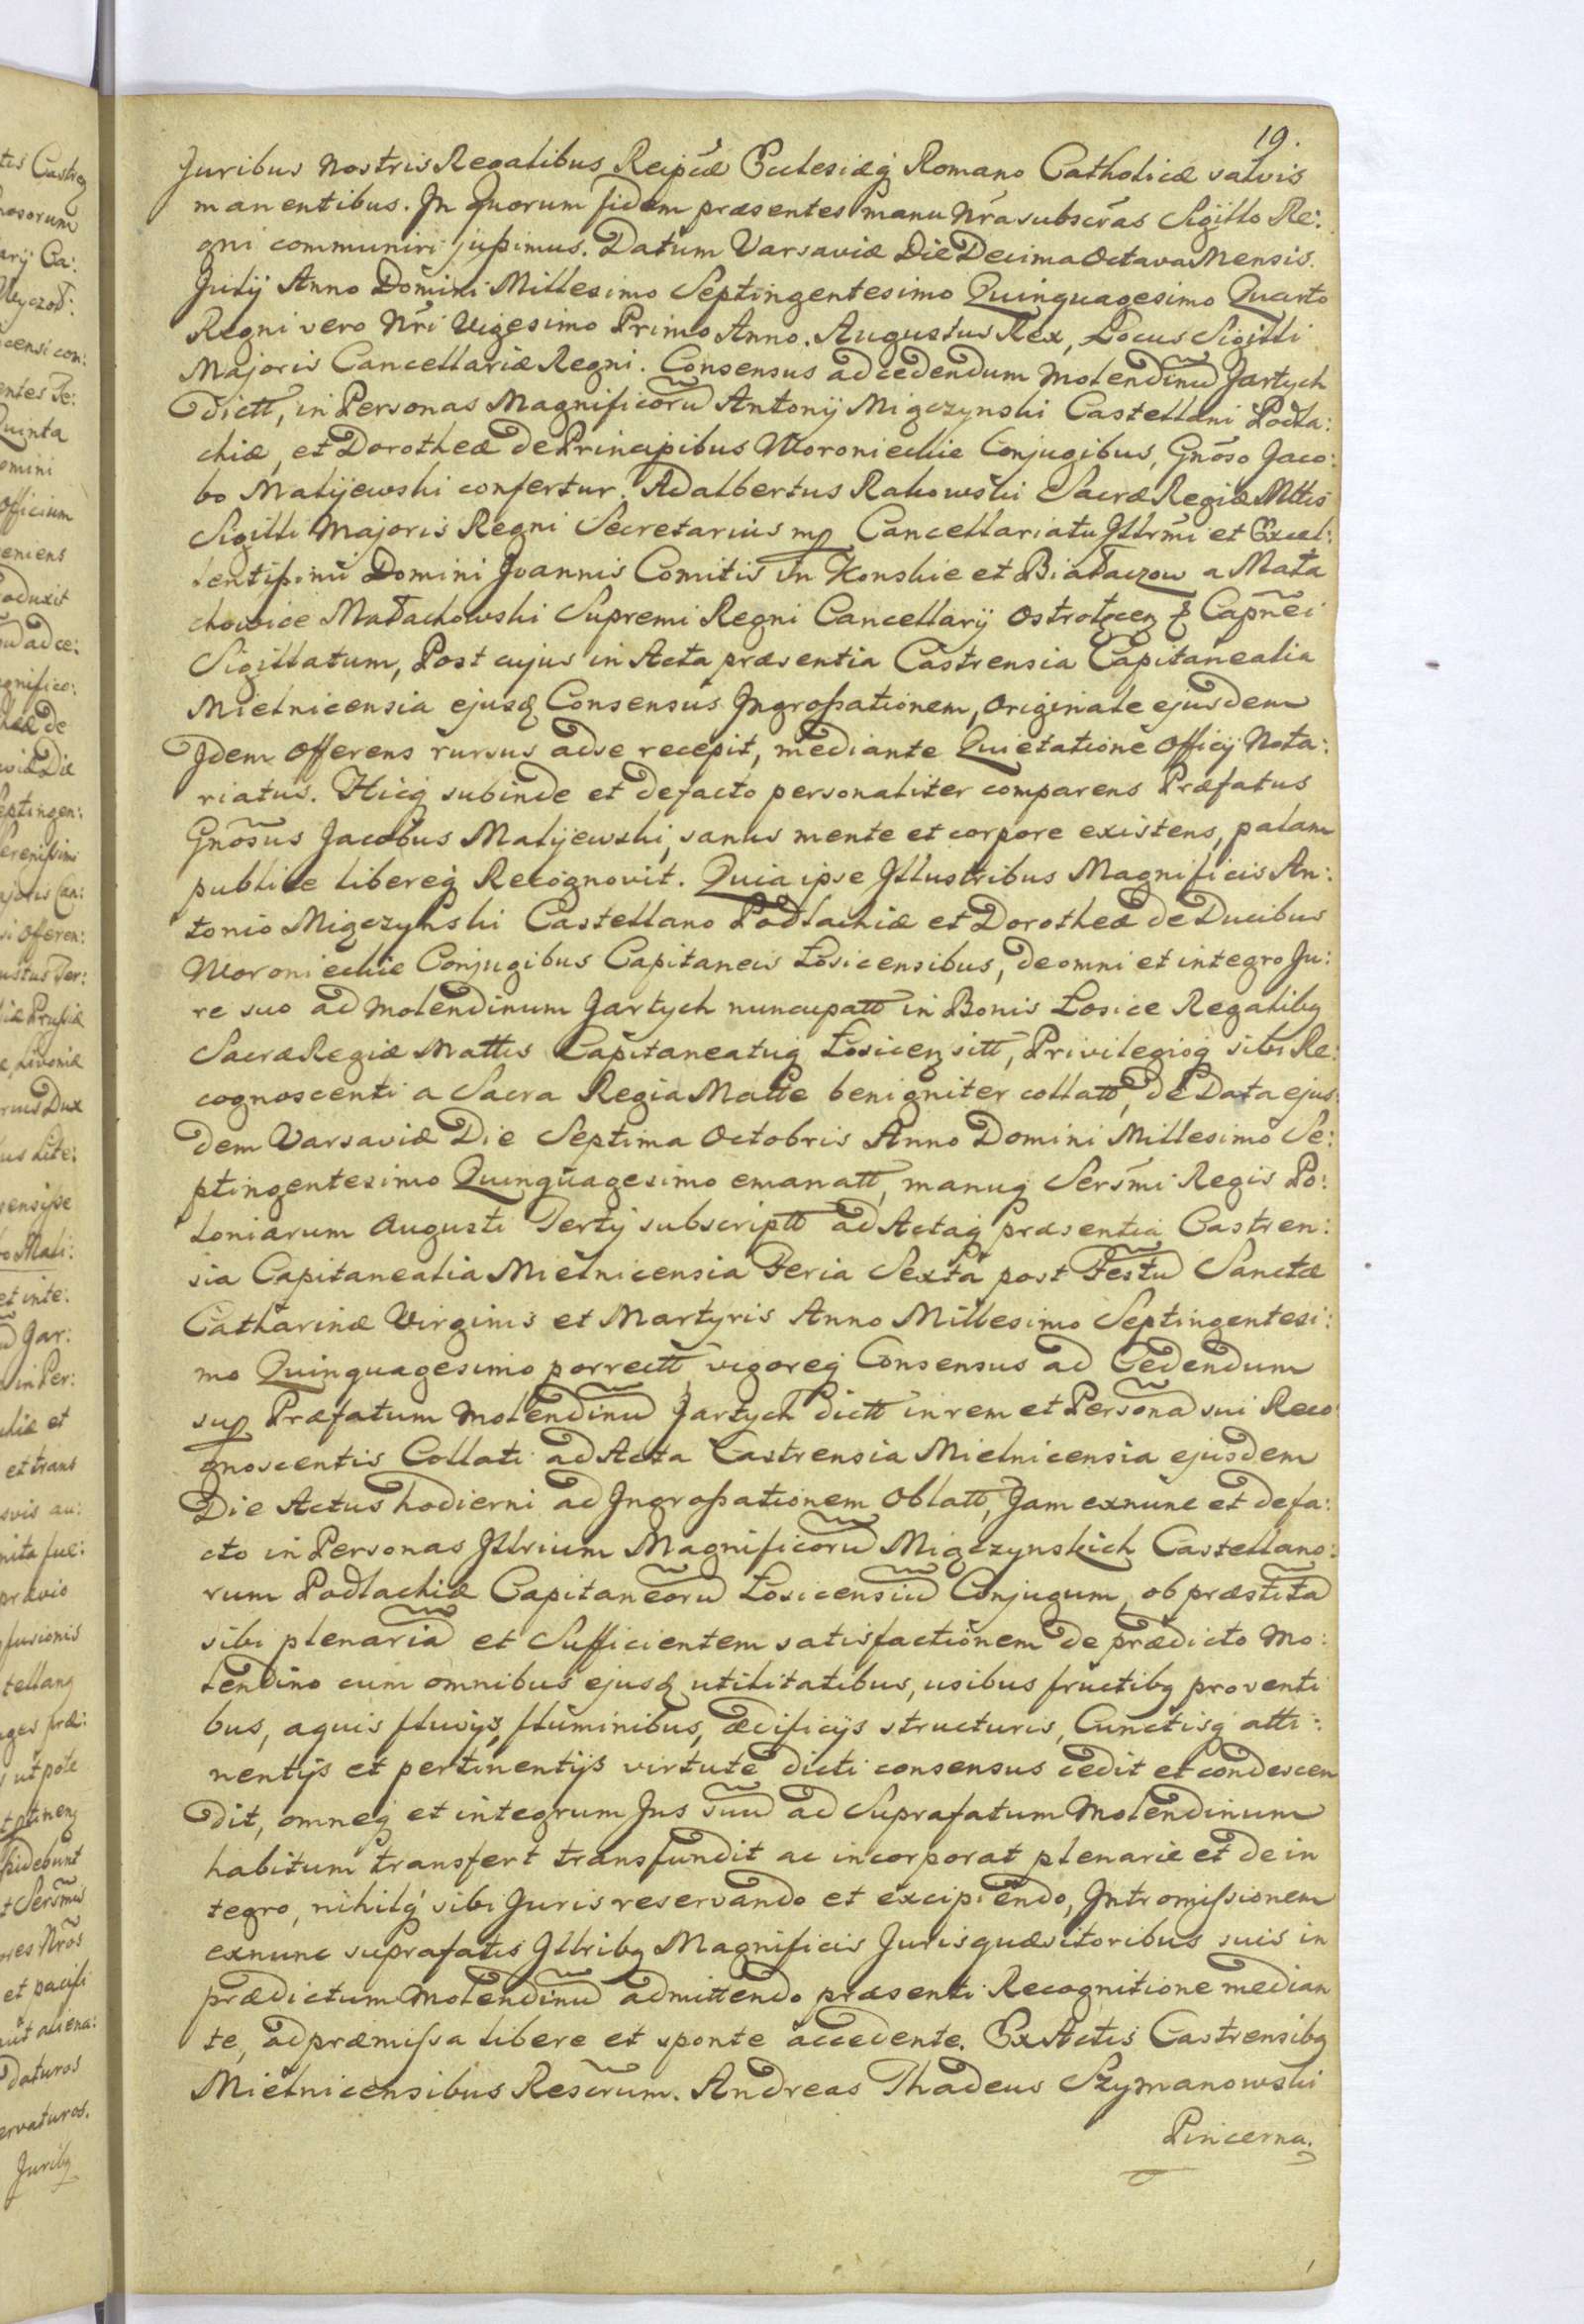 19.
Juribus Nostris Regalibus Reipcæ Ecclesiæq Romano Catholicæ salvis
manentibus. In Quorum fidem præsentes manu Nrã subscrãs Sigillo Re:
gni communiri jussimus. Datum Varsaviæ Die Decima Octava Mensis
Julij Anno Domini Millesimo Septingentesimo Quinquagesimo Quarto
Regni vero Nri Vigesimo Primo Anno. Augustus Rex, Locus Sigilli
Majoris Cancellariæ Regni. Consensus ad cedendum Molendinũ Jartych
dictt, in Personas Magnificorũ Antonij Miączynski Castellani Podla:
chiæ, et Dorotheæ de Principibus Woroniechie Conjugibus, Gnõso Jaco:
bo Malijewski confertur. Adalbertus Rakowski Sacræ Regiæ Mttis
Sigilli Majoris Regni Secretarius mp Cancellariatu Illrmi et Excel:
lentissimi Domini Joannis Comitis in Konskie et Białaczow a Mała
chowice Małachowski Supremi Regni Cancellarij Ostrołęcen & Capñei
Sigillatum, Post cujus in Acta præsentia Castrensia Capitanealia
Mielnicensia ejusq Consensus Ingrossationem, Originale ejusdem
Idem Offerens rursus ad se recepit, mediante Quietatione Officij Nota:
riatus. Hicq subinde et de facto personaliter comparens Præfatus
Gnõsus Jacobus Malijewski, sanus mente et corpore existens, palam
publice libereq Recognovit. Quia ipse Illustribus Magnificis An:
tonio Miączynski Castellano Podlachiæ et Dorotheæ de Ducibus
Woroniechie Conjugibus Capitaneis Łosicensibus, de omni et integro Ju:
re suo ad Molendinum Jartych nuncupatt in Bonis Łosice Regalibq
Sacræ Regiæ Mattis Capitaneatuq Łosicen sitt, Privilegioq sibi Re:
cognoscenti a Sacra Regia Matte benigniter collatt, de Data ejus
dem Varsaviæ Die Septima Octobris Anno Domini Millesimo Se:
ptingentesimo Quinquagesimo emanatt, manuq Sersmi Regis Po:
loniarum Augusti Tertij subscriptt ad Actaq præsentia Castren:
sia Capitanealia Mielnicensia Feria Sexta post Festũ Sanctæ
Catharinæ Virginis et Martyris Anno Millesimo Septingentesi:
mo Quinquagesimo porrectt vigoreq Consensus ad Cedendum
sup Præfatum Molendinũ Jartych dictt in rem et Personã sui Reco
gnoscentis Collati ad Acta Castrensia Mielnicensia ejusdem
Die Actus hodierni ad Ingrossationem Oblatt, Jam exnunc et defa:
cto in Personas Illrium Magnificorũ Miączynskich Castellano:
rum Podlachiæ Capitaneorũ Łosicensiũ Conjugum, ob præstitã
sibi plenariã et Sufficientem satisfactionem de prædicto Mo:
lendino cum omnibus ejusq utilitatibus, usibus fructibq proventi
bus, aquis fluvijs, fluminibus, ædificijs structuris, Cunctisq atti:
nentijs et pertinentijs virtute dicti consensus cedit et condescen
dit, omneq et integrum Jus suũ ad Suprafatum Molendinum
habitum transfert transfundit ac incorporat plenarie et de in
tegro, nihilq sibi Juris reservando et excipiendo, Intromissionem
exnunc suprafatis Illribq Magnificis Jurisquæsitoribus suis in
prædictum Molendinũ admittendo præsenti Recognitione median
te, ad præmissa libere et sponte accedente. Ex Actis Castrensibq
Mielnicensibus Rescrum. Andreas Thadeus Szymanowski
Pincerna.